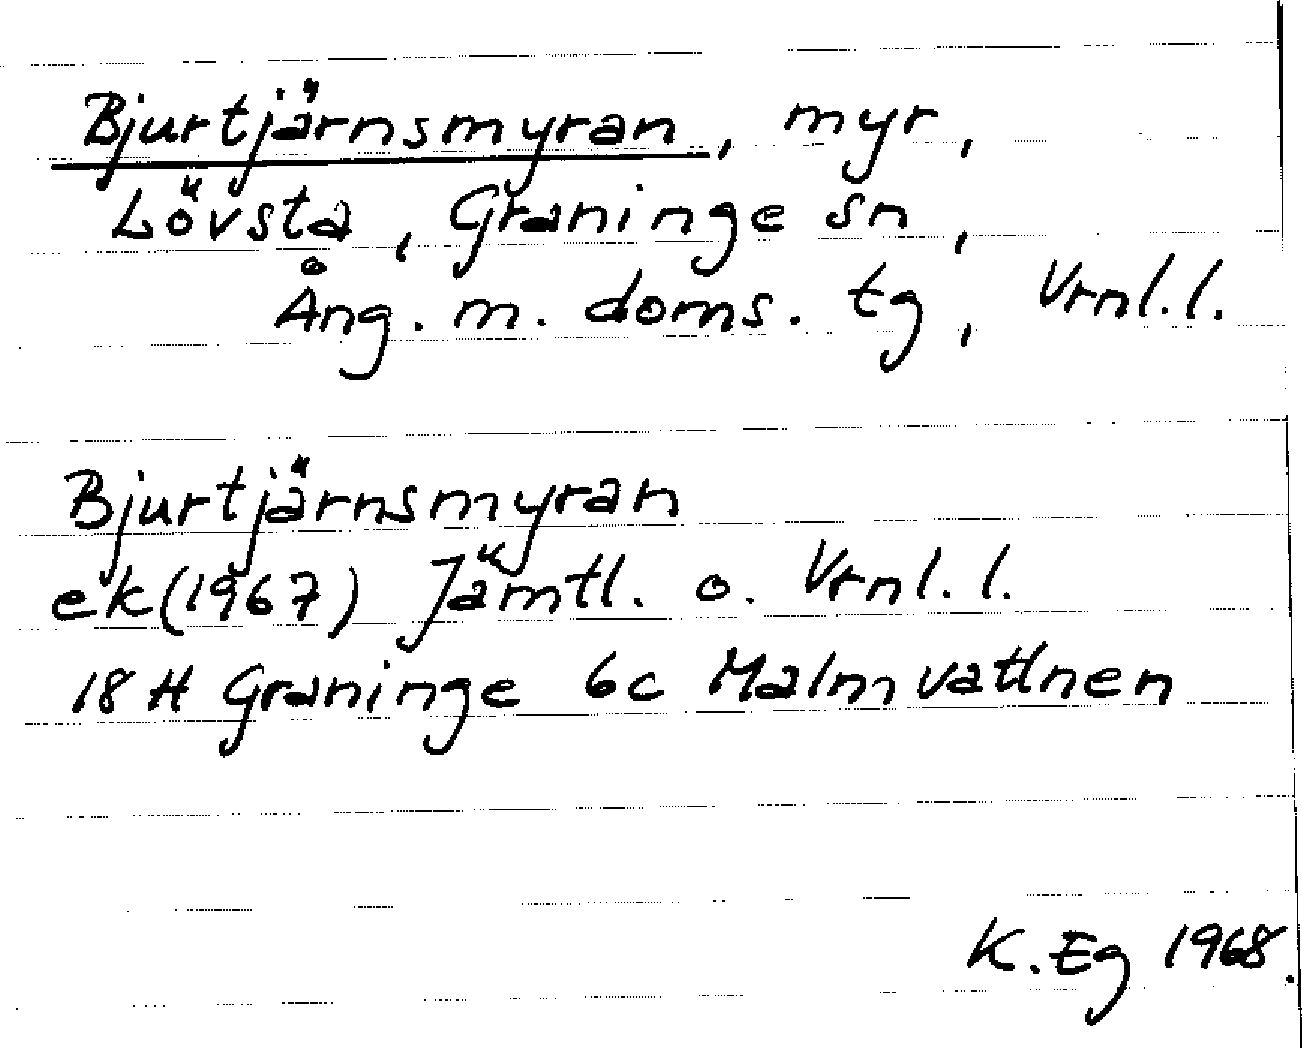 Bjurtjärnsmyran, myr,
Lövsta, Graninge sn,
Ång. m. doms. tg, Vrnl.l.
Bjurtjärnsmyran
ek (1967) Jämtl. o. Vrnl. l.
18 H Graninge 6c Malmvattnen
K. Eg 1968.